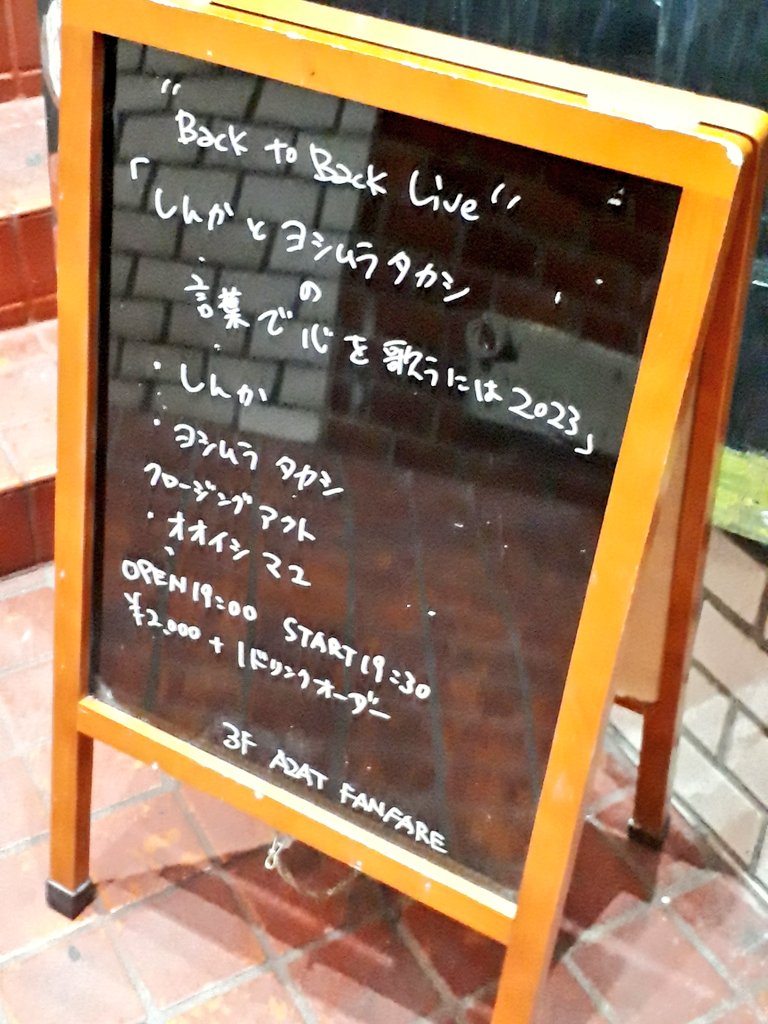 "Back to Back Live"
「しんかとヨシムラタカシ
の
言葉で心を歌うには2023」
・しんか
・ヨシムラ タカシ
クロージングアクト
・オオイシ マユ
OPEN19:00 START19:30
¥2,000+1ドリンクオーダー
3F AZAT FANFARE